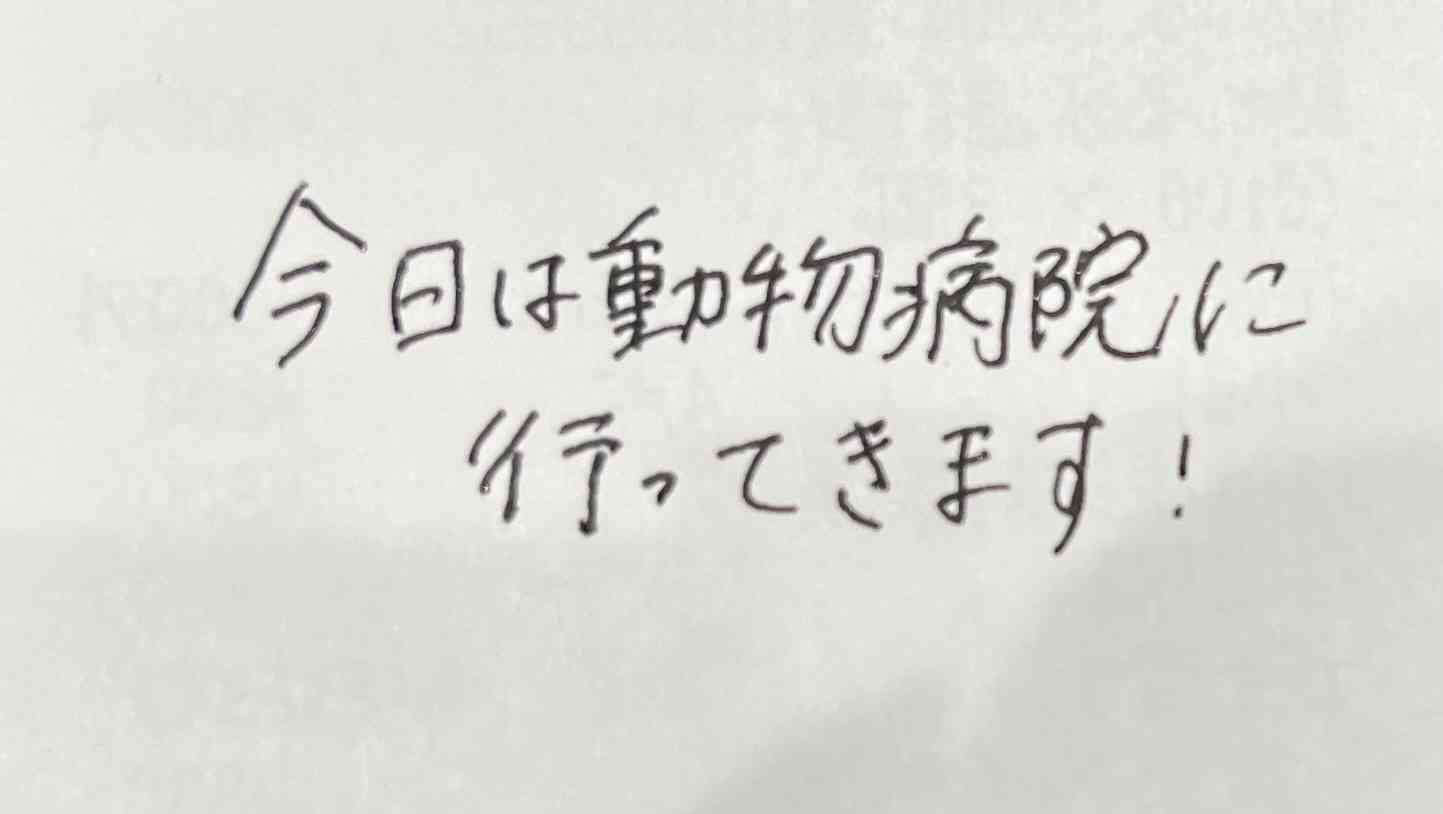 今日は動物病院に
行ってきます!